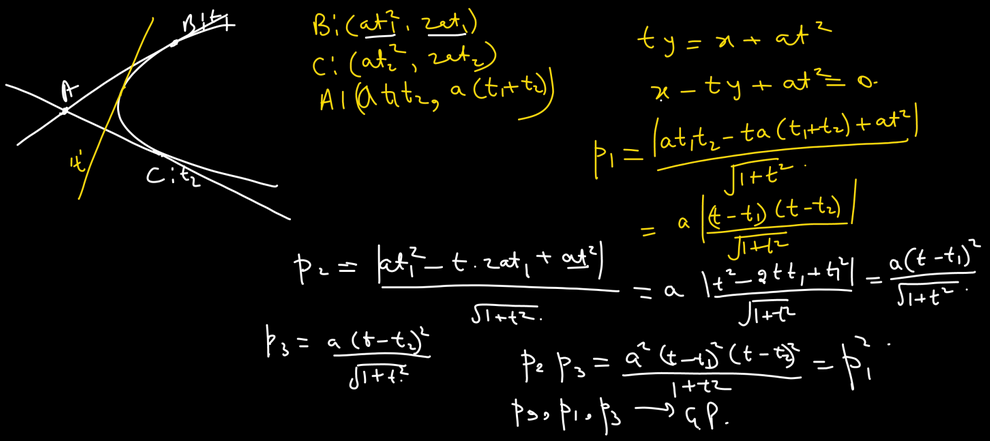 B:t₁
A
't'
C:t₂
B:(at₁², 2at₁)
C:(at₂², 2at₂)
A:(at₁t₂, a(t₁+t₂))
ty = x + at²
x - ty + at² = 0.
p₁ = |at₁t₂ - ta(t₁+t₂) + at²| / √1+t²
= a |(t-t₁)(t-t₂) / √1+t²|
p₂ = |at₁² - t·2at₁ + at²| / √1+t². = a |t² - 2tt₁ + t₁²| / √1+t² = a(t-t₁)² / √1+t².
p₃ = a(t-t₂)² / √1+t²
p₂ p₃ = a²(t-t₁)²(t-t₂)² / 1+t² = p₁².
p₂, p₁, p₃ → G.P.